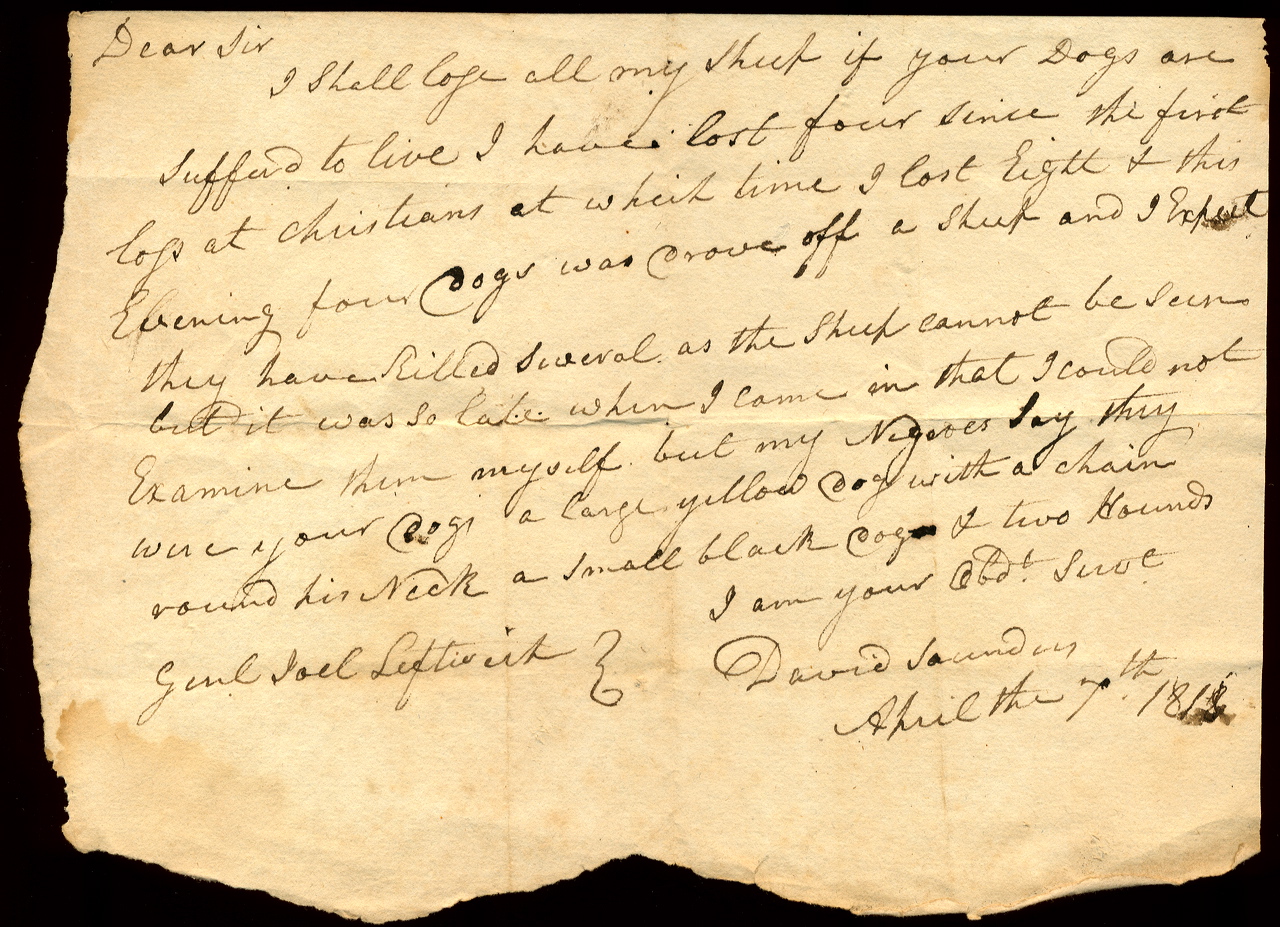 Dear Sir
I Shall lose all my Sheep if your Dogs are
Sufferd to live I have lost four since the first
loss at Christians at which time I lost Eight & this
Evening four Dogs was Drove off a Sheep and I Expect
they have killed several as the Sheep cannot be seen
but it was so late when I came in that I could not
Examine them myself but my Negroes Say they
were your Dogs a large yellow Dog with a chain
round his Neck a small black Dog & two Hounds
I am your Obdt. Servt
Genl Joel Leftwich
David Saunders
April the 7th